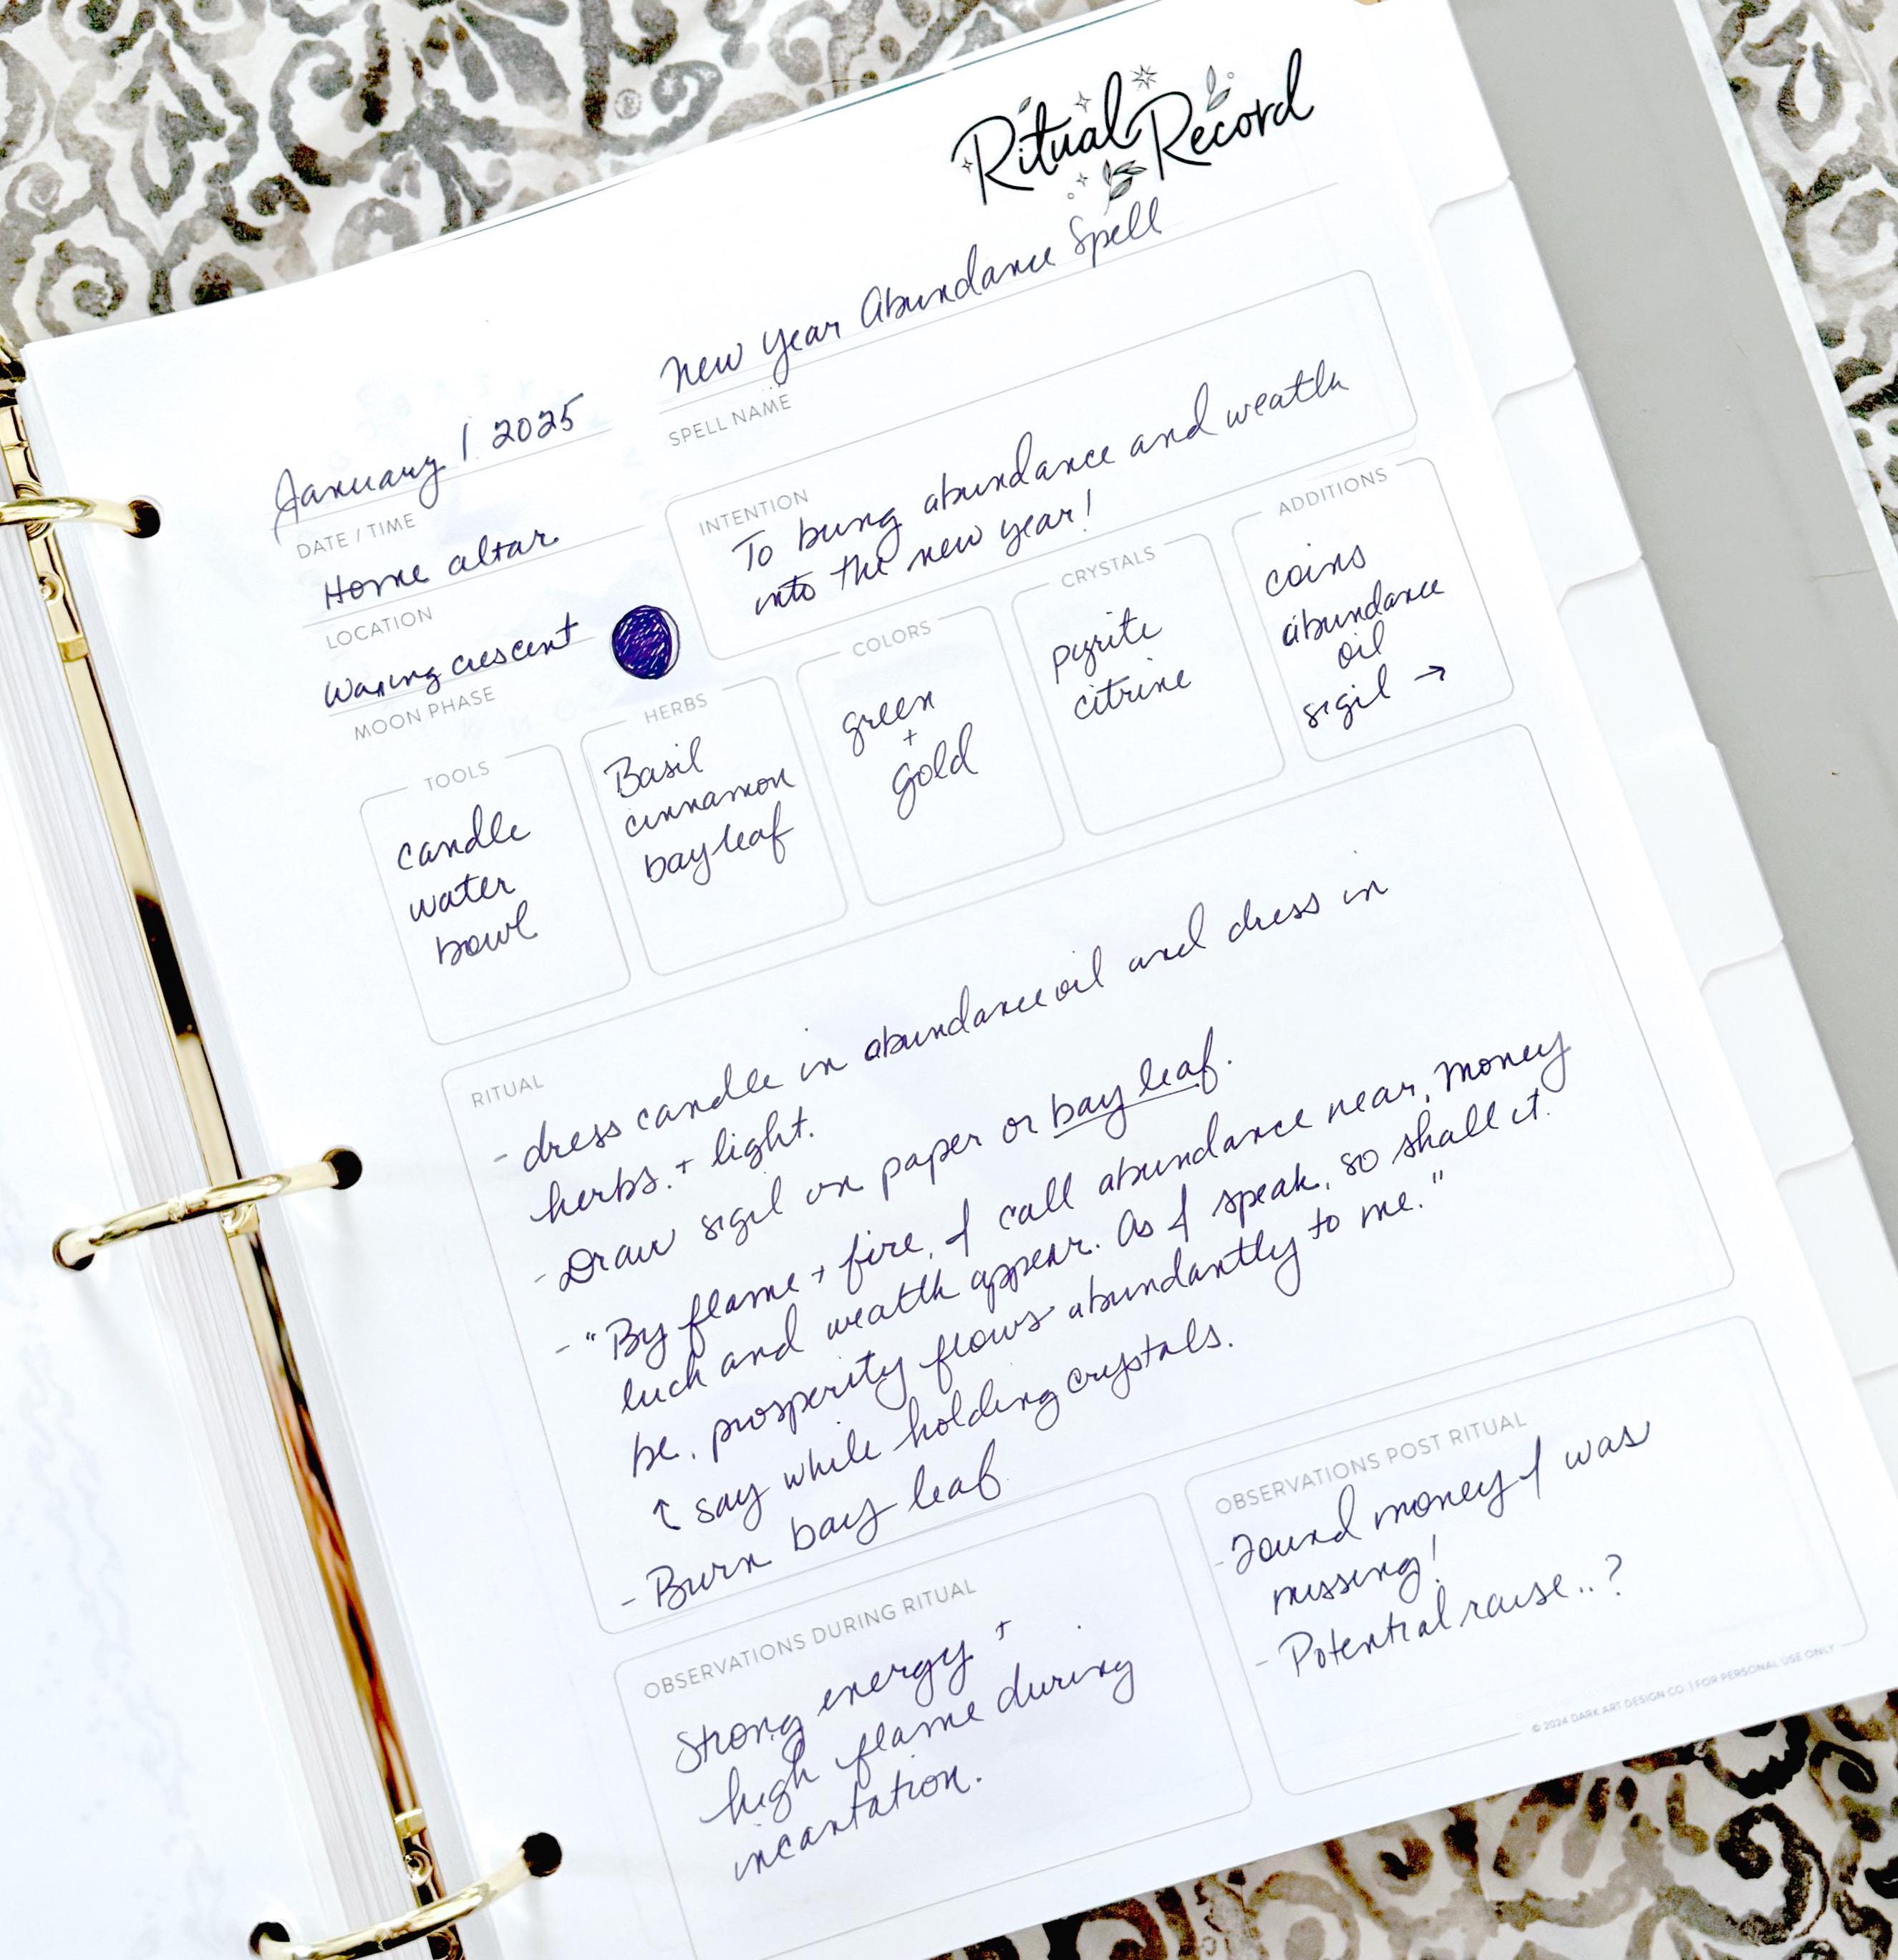 Ritual Record
New Year Abundance Spell
SPELL NAME
January 1 2025
DATE / TIME
Home altar
LOCATION
Waxing crescent
MOON PHASE
INTENTION
To bring abundance and wealth
into the new year!
TOOLS
candle
water
bowl
HERBS
Basil
cinnamon
bay leaf
COLORS
green
+
gold
CRYSTALS
pyrite
citrine
ADDITIONS
coins
abundance
oil
sigil →
RITUAL
- dress candle in abundance oil and dress in
herbs. + light.
- Draw sigil on paper or bay leaf.
- "By flame + fire, I call abundance near, money
luck and wealth appear. As I speak, so shall it
be, prosperity flows abundantly to me."
↑ say while holding crystals.
- Burn bay leaf
OBSERVATIONS DURING RITUAL
Strong energy +
high flame during
incantation.
OBSERVATIONS POST RITUAL
- Found money I was
missing!
- Potential raise..?
© 2024 DARK ART DESIGN CO. | FOR PERSONAL USE ONLY